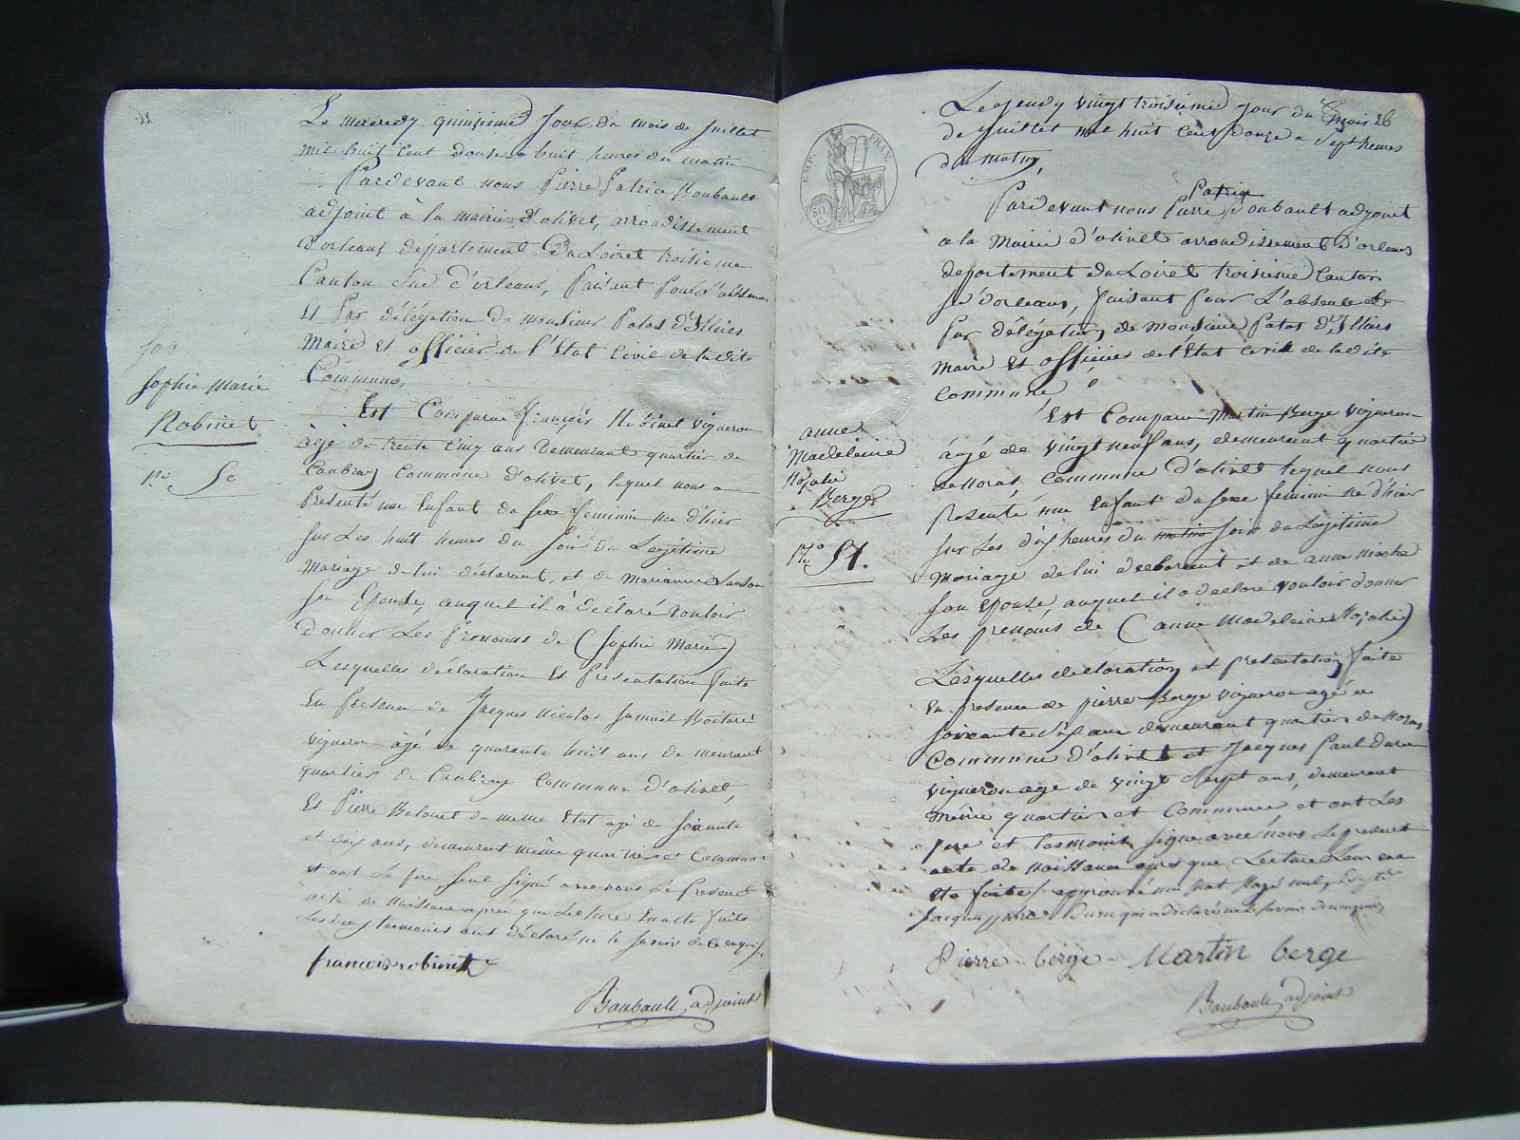 Le mercredy quinzieme Jour du mois de Juillet
mil huit Cent douze a huit heures du matin
Pardevant nous Pierre Patrice Boubault
adjoint à la mairie d'olivet, arrondissement
d'orleans, departement Du Loiret troisieme
Canton Sud d'orleans, faisant pour l'absence
Et Par délégation de monsieur Patas d'Illiers
Maire Et officier de l'Etat Civil de la dite
Commune,
Est Comparu françois Robinet Vigneron
âgé de trente Cinq ans Demeurant quartier de
Caubray Commune d'olivet, lequel nous a
Presenté une Enfant du sexe feminin née d'hier
sur Les huit heures du soir du Legitime
Mariage de lui déclarant, et de Marianne
son Epouse, auquel il à déclaré vouloir
donner Les Prenoms de (Sophie Marie)
Lesquelles déclaration Et Presentation faite
En presence de Jacques Nicolas
vigneron âgé de quarante huit ans demeurant
quartier de Caubray Commune d'olivet,
Et Pierre de meme Etat agé de soixante
et dix ans, demeurant même quartier et Commune
et ont Le pere seul signé avec nous Le Present
acte de Naissance après que Lecture En a été faite
Les deux temoins ont déclaré ne le savoir de ce enquis.
francois robinet
Boubault, adjoint
Sophie Marie
Robinet
No. 50
EMP. FRAN.
50 C
Le Jeudy vingt troisieme jour du mois 26
de Juillet mil huit Cent douze a Sept heures
du matin,
Patrix
Pardevant nous Pierre Boubault adjoint
a la Mairie d'olivet arrondissement d'orleans
departement du Loiret troisieme Canton
sud d'orleans, faisant pour L'absence et
par délégation de Monsieur Patas d'Illiers
Maire Et officier de l'Etat Civil de la dite
Commune,
Est Comparu Martin Berge vigneron
âgé de vingt neuf ans, demeurant quartier
de Noras, Commune d'olivet lequel nous
presenté une Enfant du sexe feminin née d'hier
sur Les dix heures du matin soir du Legitime
Mariage de lui declarant et de anne
son epouse, auquel il a declaré vouloir donner
Les prenoms de (anne Madeleine Rosalie)
Lesquelles declaration et presentation faite
En presence de pierre Berge vigneron agé de
soixante ans demeurant quartier de Noras
Commune d'olivet et Jacques Paul
vigneron age de vingt Sept ans, demeurant
même quartier et Commune, et ont Les
pere et temoins signe avec nous Le present
acte de Naissance après que Lecture Leur en a
été faite, approuvé un mot Rayé nul,
Jacques qui a declaré ne le savoir de ce enquis,
Pierre berge Martin berge
Boubault, adjoint
anne
Madeleine
Rosalie
Berge
No. 51.